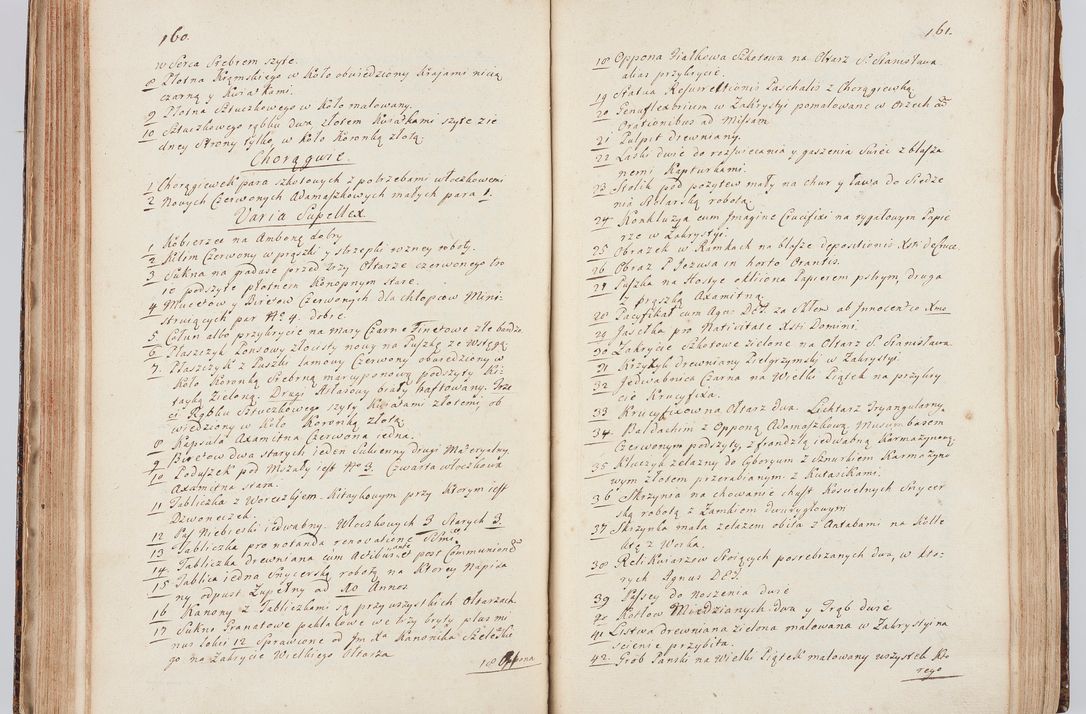 160.
w Serca Srebrem szyte.
8 Płotna Krąmskiego w Koło obwiedziony Krajami nicią
czarną y Kwiatkami.
9 Płotna Sztuczkowego w Koło malowany.
10 Sztuczkowego rąbku dwa złotem Kwiatkami szyte z ie
dney Strony tylko, w Koło Koronką złotą.
Chorągwie.
1 Chorągiewek para szkotowych z potrzebami włoczkowemi
2 Nowych Czerwonych Adamaszkowych małych para 1.
Varia Supellex.
1 Kobierzec na Ambonę dobry
2 Kilim Czerwony w prążki y strzępki rozney roboty.
3 Sukna na gradusie przed trzy Ołtarze czerwonego tro
ie podszyte płotnem Konopnym stare.
4 Mucetow y Biretow Czerwonych dla chłopcow Mini-
struiących par No 4. dobre.
5 Całun albo przykrycie na Mary Czarne Tinetowe złe bardzo
6 Płaszczyk Ponsowy złocisty nowy na Puszkę ze Wstęgą
7. Płaszczyk z Puszki lamowy Czerwony obwiedziony w
Koło Koronką Srebrną marcypanową podszyty Ki-
tayką Zieloną. Drugi Atłasowy biały haftowany. Trze
ci Rąbku Sztuczkowego szyty Kwiatami złotemi, ob
wiedziony w Koło Koronką złotą.
8 Kapsuła Axamitna Czerwona iedna.
9 Biretow dwa starych ieden Sukienny drugi Materyalny.
10 Poduszek pod Mszały iest No 3. Czwarta włoczkowa
Axamitna stara.
11 Tabliczka z Woreczkiem Kitaykowym przy Ktorym iest
Dzwoneczek.
12 Pas Niebieski iedwabny. Włoczkowych 3 Starych 3.
13 Tabliczka pro notanda renovatione SSmi
14. Tabliczka drewniana cum Actibus post Communionem
15 Tablica iedna Snycerską robotą na Ktorey Napisa
ny odpust Zupełny ad 10 Annos
16 Kanony z Tabliczkami są przy wszystkich Ołtarzach.
17 Sukno Granatowe pokłakowe we trzy bryty plus mi
nus łokci 12. Sprawione od Jm Xa Kanonika Szeleskie
go na Zakrycie Wielkiego Ołtarza
18 Oppona
161.
18 Oppona Fiałkowa Szkotowa na Ołtarz S. Stanisława
alias przykrycie.
19 Statua Resurrectionis Paschalis z Chorągiewką
20 Genuflexorium w Zakrystyi pomalowane w Orzech cum
Orationibus ad Missam.
21 Pulpit drewniany.
22 Laski dwie do rozswiecania y gaszenia Swiec z blasza
nemi Kapturkami.
23 Stolik pod pozytew mały na chur y ława do Siedze
nia Stolarską robotą.
24 Konkluzya cum Imagine Crucifixi na rygałowym Papie
rze w Zakrystyi.
25 Obrazek w Ramkach na blasze depositionis Xsti de Cruce
26 Obraz P. Jezusa in horto Orantis.
27 Puszka na Hostye okliiona Papierem pstrym, druga
w prążką Axamitną.
28 Pacyfikał cum Agno DEI. za szkłem ab Innocentio Xmo
29 Jasełka pro Nativitate Xsti Domini.
30 Zakrycie Szkotowe zielone na Ołtarz S. Stanisława
31 Krzyżyk drewniany Pielgrzymski w Zakrystyi
32 Jedwabnica Czarna na Wielki Piątek na przykry
cie Krucyfixa.
33 Krucyfixow na Ołtarz dwa. Lichtarz Tryangularny.
34. Baldachim z Opponą Adamaszkową Musumbasem
Czerwonym podszyty, z frandzlą iedwabną Karmazynową
35 Kluczyk żelazny do Cyboryum z Sznurkiem Karmazyno
wym złotem przerabianym z Kutasikami.
36 Skrzynia na chowanie chust Koscielnych Snycer
ską robotą z Zamkiem dwuryglowym
37. Skrzynka mała zelazem obita z Antabami na Kolle
ktę z Worka.
38 Relikwiarzow Stoiących posrebrzanych dwa, w kto-
rych Agnus DEI.
39 Passey do Noszenia dwie
40 Kotłow Miedzianych dwa y Trąb dwie
41 Listwa drewniana zielona malowana w Zakrystyi na
scienie przybita.
42. Grob Panski na Wielki Piątek malowany wszystek kto
rego